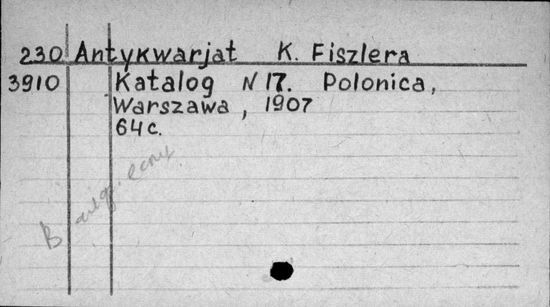 230 Antykwarjat K. Fiszlera
3910 Katalog N 17. Polonica,
Warszawa, 1907
64 c.
В